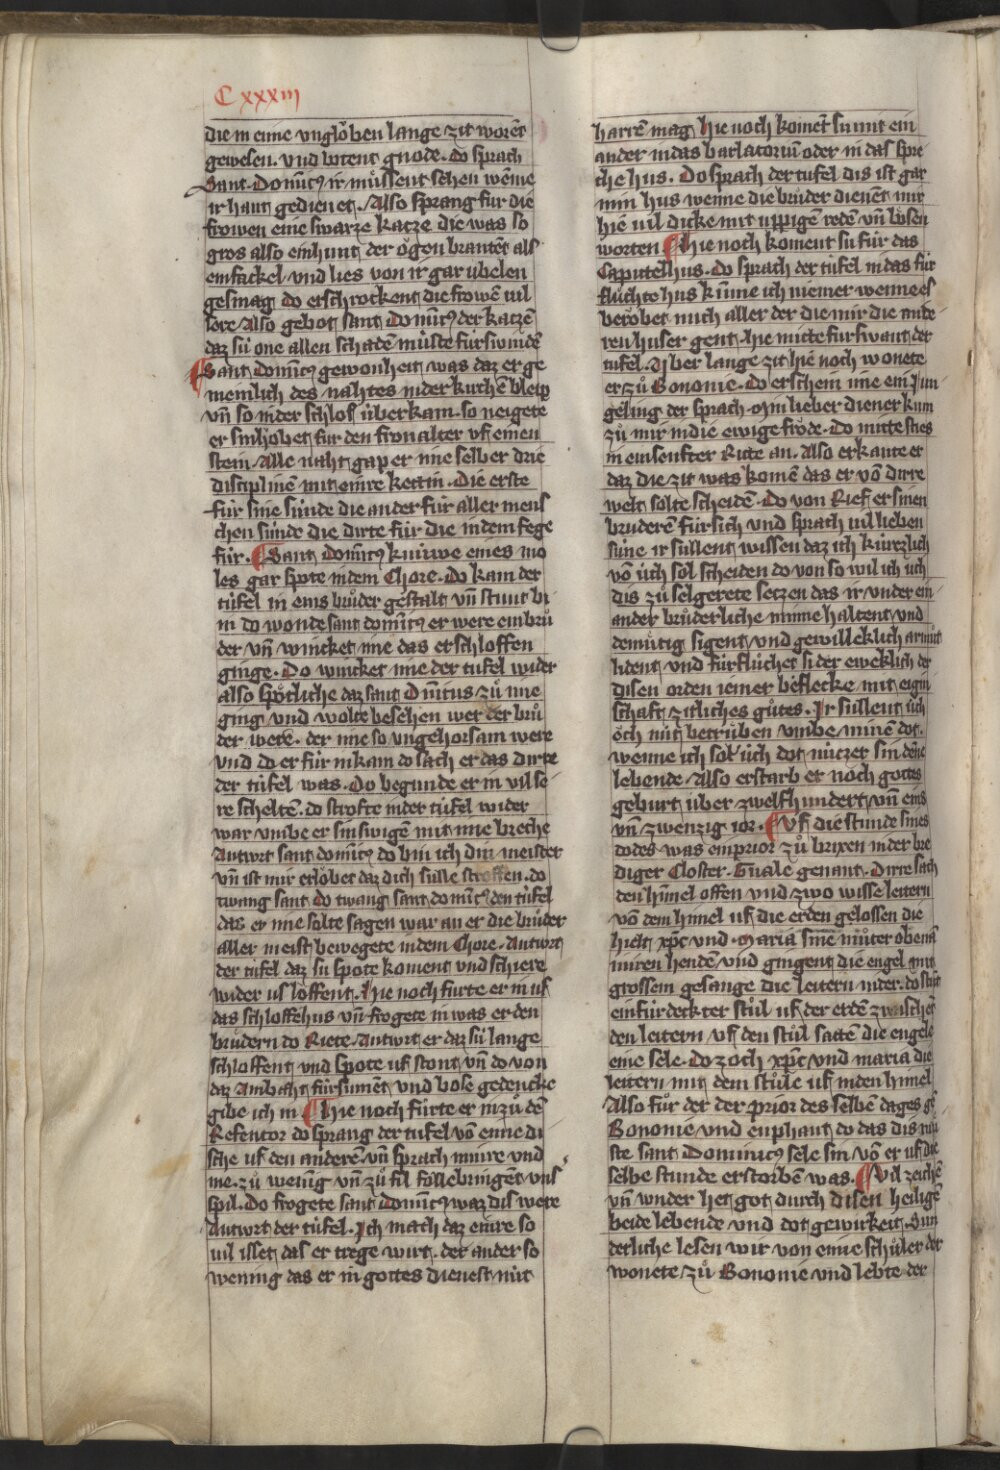 C xxxiii
die in eime vnglöben lange zit worēt
gewesen. vnd botent gnode. do sprach
Sant. Domīcꝰ ir müssent sehen wēme
ir hant gedienet. Also sprang für die
frowen eine swarze katze die was so
gros also ein hunt der ögen brantēt als
ein fackel vnd lies von ir gar übelen
gesmag do erschrockent die frowē vil
sere Also gebot sant domīcꝰ der katzē
daz sü one allen schadē müste fürswindē
Sant domīcꝰ gewonheit was daz er ge
meinlich des nahtes in der kirchē bleip
vn̄ so in der schlof überkam. so neigete
er sin höbet für den fronalter vf einen
stein. Alle naht gap er ime selber drie
disciplinē mit einre kettin. Die erste
für sine sünde die ander für aller mens
chen sünde die dirte für die in dem fege
für. Sant domīcꝰ knüwe eines mo
les gar spote in dem Chore. do kam der
tüfel in eins brůder gestalt vn̄ stunt bi
im do wonde sant domīcꝰ er were ein brů
der vn̄ wincket ime das er schloffen
ginge. Do wincket ime der tufel wider
also spötliche daz sant dn̄icus zů ime
ging vnd wolte besehen wer der brů
der were. der ime so vngehorsam were
vnd do er für in kam do sach er das dirre
der tüfel was. Do begunde er in vil se
re scheltē. do strofte in der tüfel wider
war vmbe er sin swigē mit ime breche
Antwrt sant domīcꝰ do bin ich din meister
vn̄ ist mir erlöbet daz dich sülle stroffen. do
twang sant do twang sant domīcꝰ den tüfel
das er ime solte sagen war an er die brüder
aller meist bewegete in dem Chore. Antwrt
der tüfel daz sü spote koment vnd schiere
wider us löffent. Hie noch furte er in uf
das schloffehus vn̄ frogete in was er den
brüdern do Riete. Antwrt er daz sü lange
schloffent vnd spote uf stont vn̄ do von
daz Ambacht fürsumēt vnd böse gedencke
gibe ich in Hie noch fürte er in zů dē
Refentor do sprang der tufel vō eime di
sche uf den anderē vn̄ sprach minre vnd
me. zů wenig vn̄ zů fil föllebringent vns
spil. Do frogete sant domīcꝰ waz dis were
Antwrt der tüfel. Ich mach daz einre so
vil isset das er trege wirt. der ander so
wening das er in gottes dienest nüt
harrē mag Hie noch komēt sü mit ein
ander in das barlatoriū oder in das spre
che hus. Do sprach der tufel dis ist gar
min hus wenne die brüder dienēt mir
hie vil dicke mit üppigē redē vn̄ bösen
worten Hie noch koment sü für das
Capittelhus. do sprach der tüfel in das für
flüchte hus kūme ich niemer wenne es
beröbet mich aller der die mir die ande
ren huser gent. hie mitte fur swant der
tufel. Aber lange zit hie noch wonete
er zů Bononie. do erschein ime ein Jun
geling der sprach. Min lieber diener kum
zů mir in die ewige fröde. do mitte sties
in ein senfter Ritte an. Also erkante er
daz die zit was komē das er vō dirre
welt solte scheidē. do von Rief er sinen
bruderē für sich vnd sprach vil lieben
süne ir süllent wissen daz ich kürzlich
vō üch sol scheiden do von so wil ich üch
dis zů selgerete setzen das ir vnder ein
ander brüderliche minne haltent vnd
demütig sigent vnd gewilleklich armůt
lident vnd fürflüchet si der eweklich der
disen orden iemer beflecke mit eigin
schaft zitliches gůtes. Ir süllent üch
öch nüt betrüben vmbe minē dot.
wenne ich sol üch dot nüczer sin dēne
lebende. Also erstarb er noch gottes
geburt über zwelfhundert vn̄ eins
vn̄ zwenzig ior. Uf die stunde sines
dodes was ein prior zů brixen in der bre
diger Closter. Gūale genant. Dirre sach
den himel offen vnd zwo wisse leitern
vō dem himel uf die erden gelossen die
hielt xp̄c vnd. Maria sine můter obenā
in iren hendē vnd gingent die engel mit
grossem gesange die leitern nider. do stūt
ein fürdeckter stůl uf der erdē zwuschēt
den leitern vf den stůl sattē die engele
eine sele. do zoch xp̄c vnd maria die
leitern mit dem stůle uf in den himel
Also fůr der der prior des selbē dages gē
Bononie vnd enphant do das dis mů
ste sant Dominicus sele sin vō er uf die
selbe stunde erstorbē was. Vil zeichē
vn̄ wnder het got durch disen heiligē
beide lebende vnd dot gewirket. Sun
derliche lesen wir von eime schůler der
wonete zů Bononie vnd lebte der